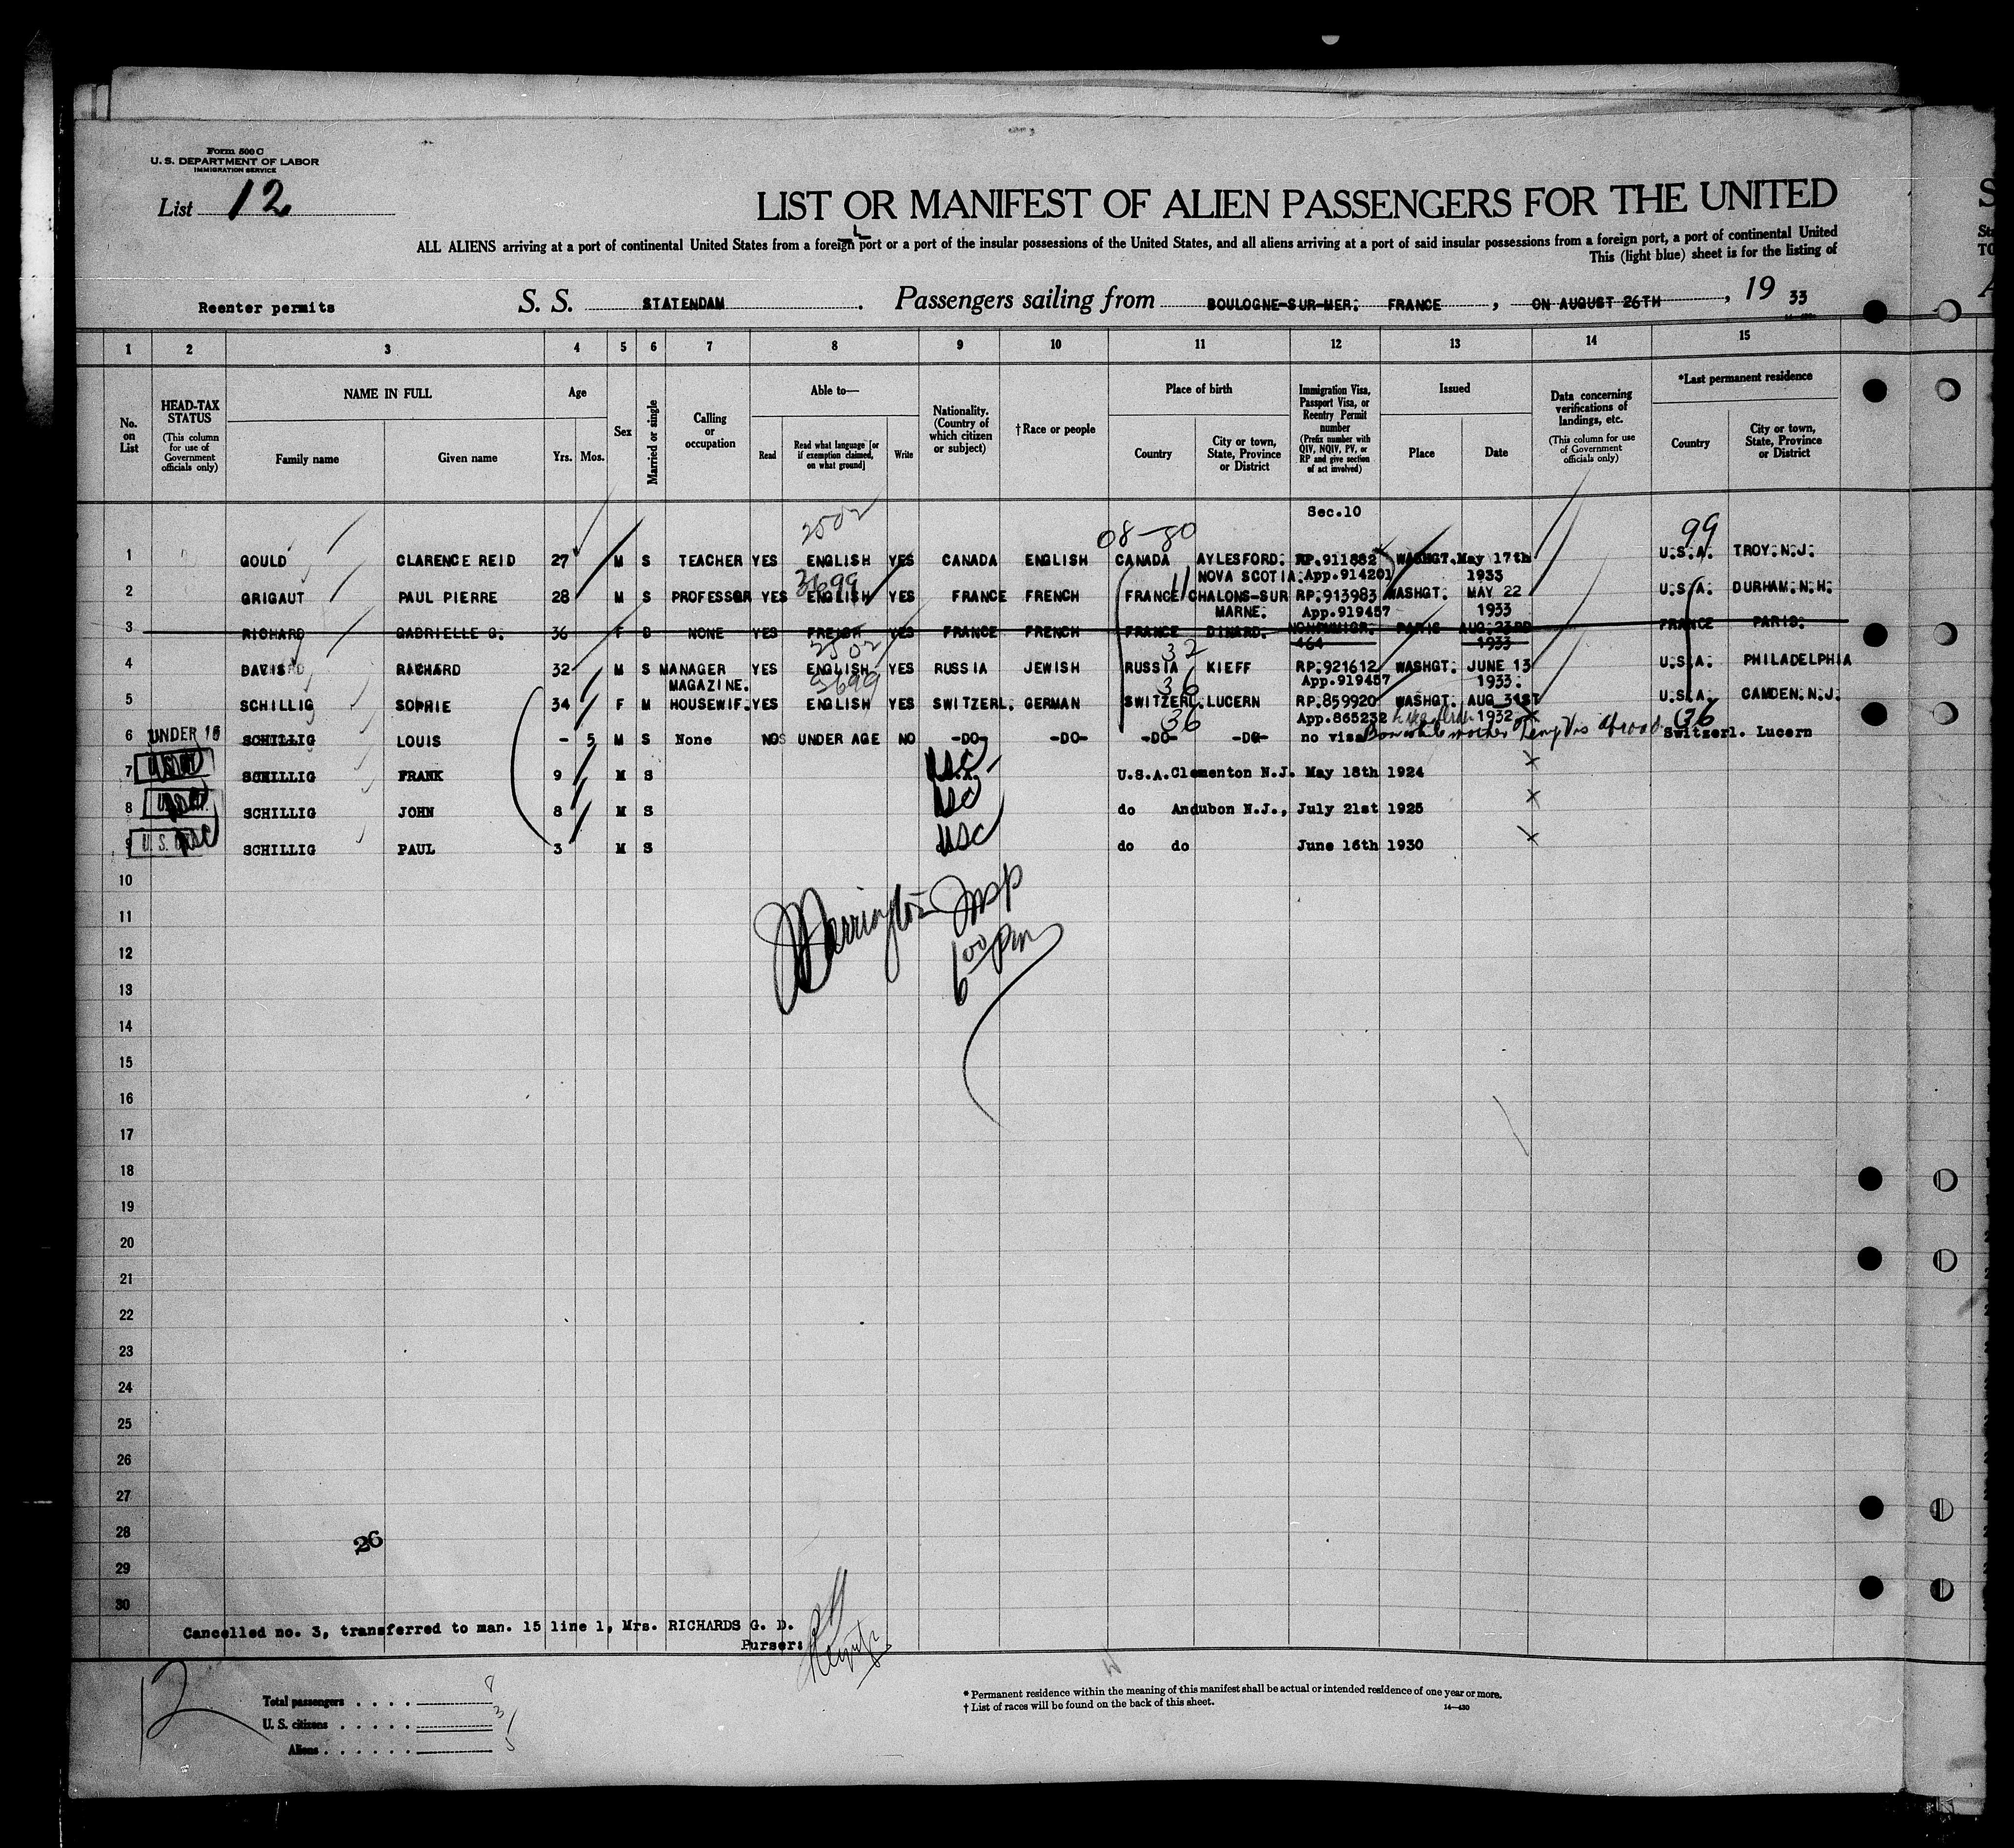 Form 500 C
U. S. DEPARTMENT OF LABOR
IMMIGRATION SERVICE
List 12
LIST OR MANIFEST OF ALIEN PASSENGERS FOR THE UNITED
ALL ALIENS arriving at a port of continental United States from a foreign port or a port of the insular possessions of the United States, and all aliens arriving at a port of said insular possessions from a foreign port, a port of continental United
This (light blue) sheet is for the listing of
Reenter permits S. S. STATENDAM . Passengers sailing from BOULOGNE-SUR-MER. FRANCE , ON AUGUST 26TH , 19 33
1 2 3 4 5 6 7 8 9 10 11 12 13 14 15
No. on List
HEAD-TAX STATUS (This column for use of Government officials only)
NAME IN FULL Family name Given name
Age Yrs. Mos.
Sex
Married or single
Calling or occupation
Able to— Read Read what language [or if exemption claimed, on what ground] Write
Nationality. (Country of which citizen or subject)
†Race or people
Place of birth Country City or town, State, Province or District
Immigration Visa, Passport Visa, or Reentry Permit number (Prefix number with QIV, NQIV, PV, or RP and give section of act involved)
Issued Place Date
Data concerning verifications of landings, etc. (This column for use of Government officials only)
*Last permanent residence Country City or town, State, Province or District
Sec.10
2502 08-80 99
1 GOULD CLARENCE REID 27 M S TEACHER YES ENGLISH YES CANADA ENGLISH CANADA AYLESFORD. RP.911882 WASHGT. May 17th U.S.A. TROY.N.J.
3699 NOVA SCOTIA. App.914201 1933
2 GRIGAUT PAUL PIERRE 28 M S PROFESSOR YES ENGLISH YES FRANCE FRENCH FRANCE 11 CHALONS-SUR RP.913983 WASHGT. MAY 22 U.S.A. DURHAM.N.H.
MARNE. App.919457 1933
3 RICHARD GABRIELLE G. 36 F D NONE YES FRECH YES FRANCE FRENCH FRANCE DINARD. NONIMMIGR. PARIS AUG.23RD FRANCE PARIS.
2502 32 464 1933
4 DAVIS RICHARD 32 M S MANAGER YES ENGLISH YES RUSSIA JEWISH RUSSIA KIEFF RP.921612 WASHGT. JUNE 13 U.S.A. PHILADELPHIA
MAGAZINE. 3699 36 App.919457 1933.
5 SCHILLIG SOPHIE 34 F M HOUSEWIF. YES ENGLISH YES SWITZERL. GERMAN SWITZERL. LUCERN RP.859920 WASHGT. AUG 31ST U.S.A. CAMDEN.N.J.
36 App.865232 1932 36
6 UNDER 16 SCHILLIG LOUIS - 5 M S None NO UNDER AGE NO -DO- -DO- -DO- -DO- no visa Born while mother Temp Vis Abroad Switzerl. Lucern
7 SCHILLIG FRANK 9 M S USC U.S.A. Clementon N.J. May 18th 1924
8 SCHILLIG JOHN 8 M S USC do Audubon N.J., July 21st 1925
9 U. S. USC SCHILLIG PAUL 3 M S USC do do June 16th 1930
10
Warrington Insp
11
6 00 Pm
12
13
14
15
16
17
18
19
20
21
22
23
24
25
26
27
28
26
29
30
Cancelled no. 3, transferred to man. 15 line 1, Mrs. RICHARDS G. D.
Purser:
12
Total passengers . . . . 8
U. S. citizens . . . . . 3
Aliens . . . . . . 5
* Permanent residence within the meaning of this manifest shall be actual or intended residence of one year or more.
† List of races will be found on the back of this sheet. 14—430